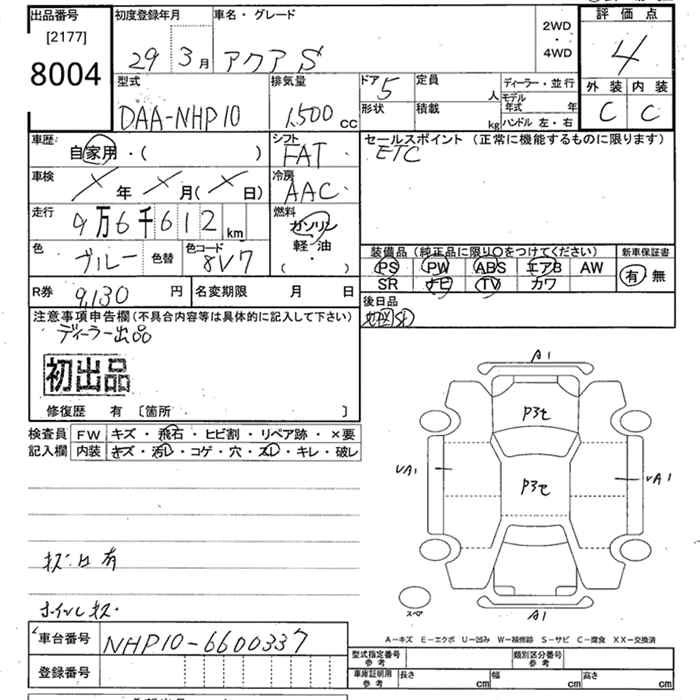 出品番号
[2177]
8004
初度登録年月
29年 3月
車名・グレード
アクア S
2WD
・
4WD
評価点
4
外装 内装
C C
型式
DAA-NHP10
排気量
1,500 cc
ドア 5
形状
定員 人
積載 kg
ディーラー・並行
モデル年式 年
ハンドル 左・右
車歴:
自家用・( )
シフト
FAT
セールスポイント (正常に機能するものに限ります)
ETC
車検 × 年 × 月( × 日)
冷房
AAC
走行
9万6千612 km
燃料
ガソリン
軽・油
( ・ )
色 ブルー 色替
色コード
8V7
装備品(純正品に限り○をつけてください)
新車保証書
PS PW ABS エアB AW
SR ナビ TV カワ
有 無
R券 9,130 円
名変期限 月 日
後日品
注意事項申告欄(不具合内容等は具体的に記入して下さい)
ディーラー出品
初出品
修復歴 有 〔箇所 〕
検査員
記入欄
FW キズ・飛石・ヒビ割・リペア跡・×要
内装 キズ・汚レ・コゲ・穴・スレ・キレ・破レ
A1
P3セ
P3セ
VA1
VA1
A1
スペア
キズ凹有
ホイルキズ・
A-キズ E-エクボ U-凹み W-補修跡 S-サビ C-腐食 XX-交換済
車台番号 NHP10-6600337
登録番号
型式指定番号
参考
類別区分番号
参考
車庫証明用
参考
長さ cm 幅 cm 高さ cm